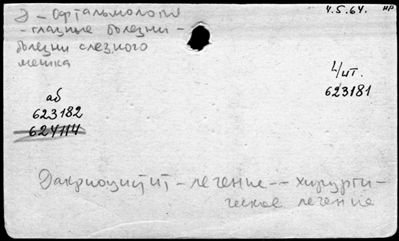 Э - Офтальмология
- глазные болезни -
болезни слезного
мешка
4.5.64. нр
L/ит.
623181
аб
623182
624114
Дакриоцистит - лечение -- хирурги-
ческое лечение